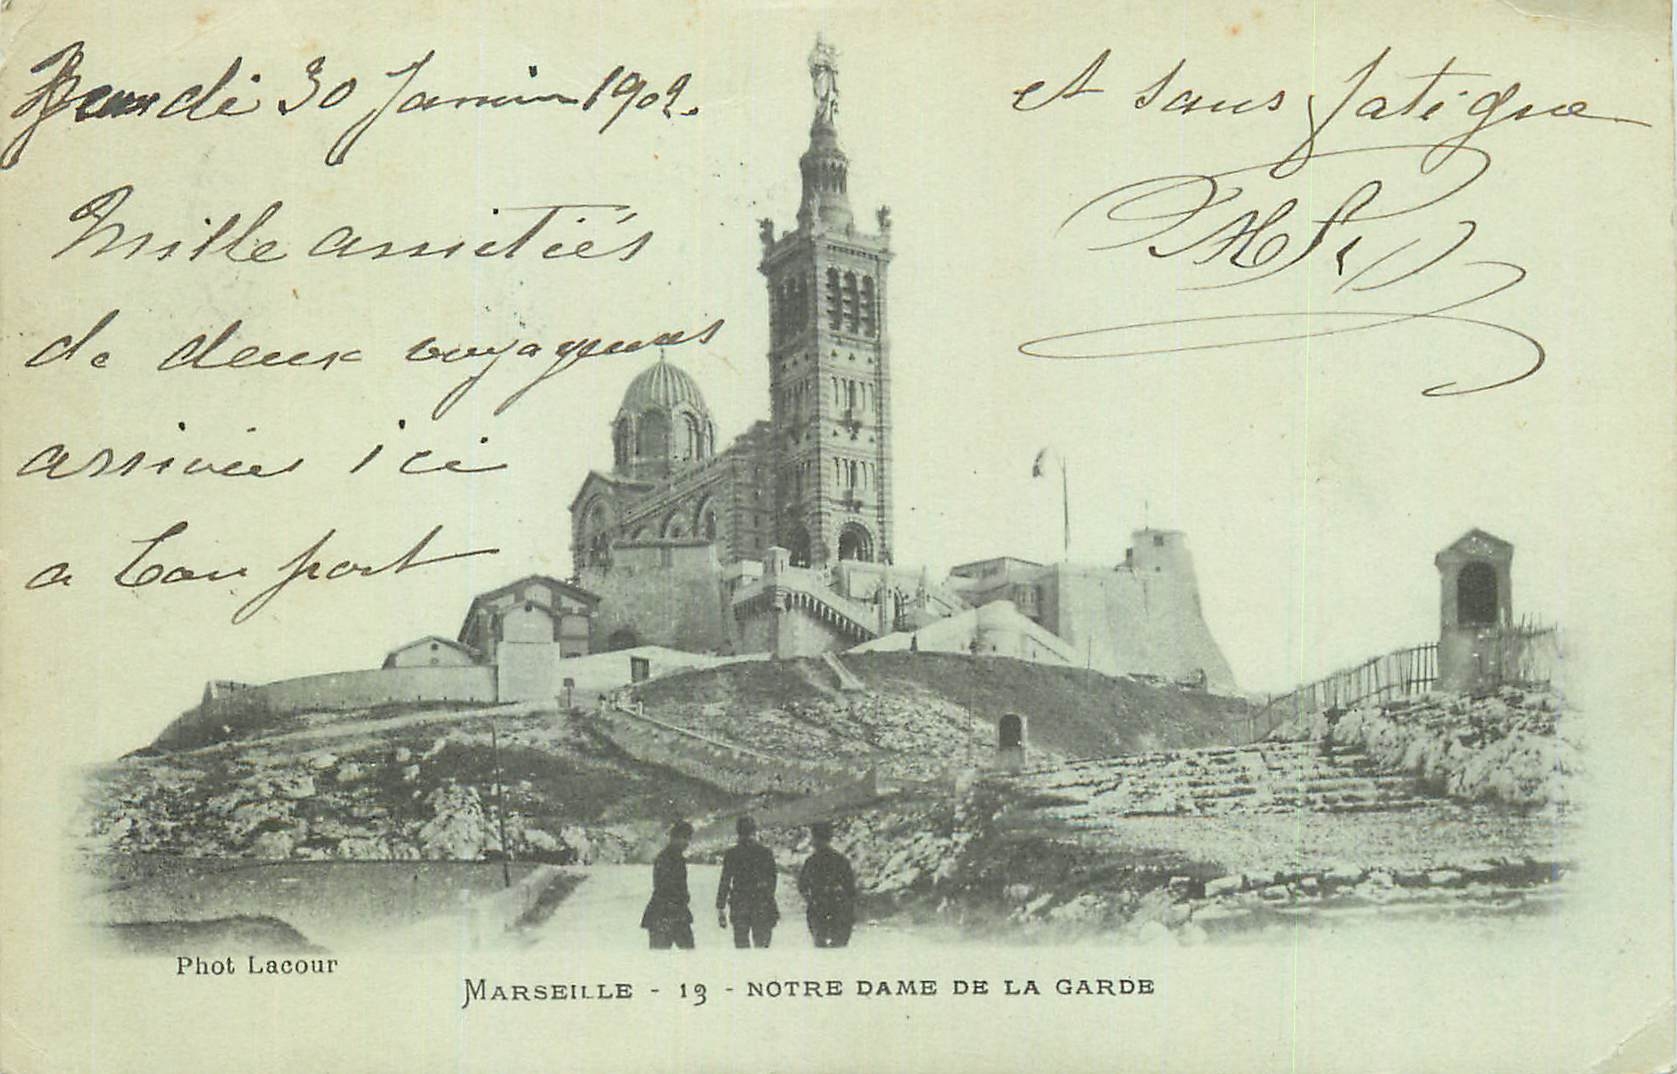 Jeudi 30 Janvier 1902.
Mille amitiés
de deux voyageurs
arrivés ici
a bon port
et sans fatigue
Phot Lacour
MARSEILLE - 13 - NOTRE DAME DE LA GARDE